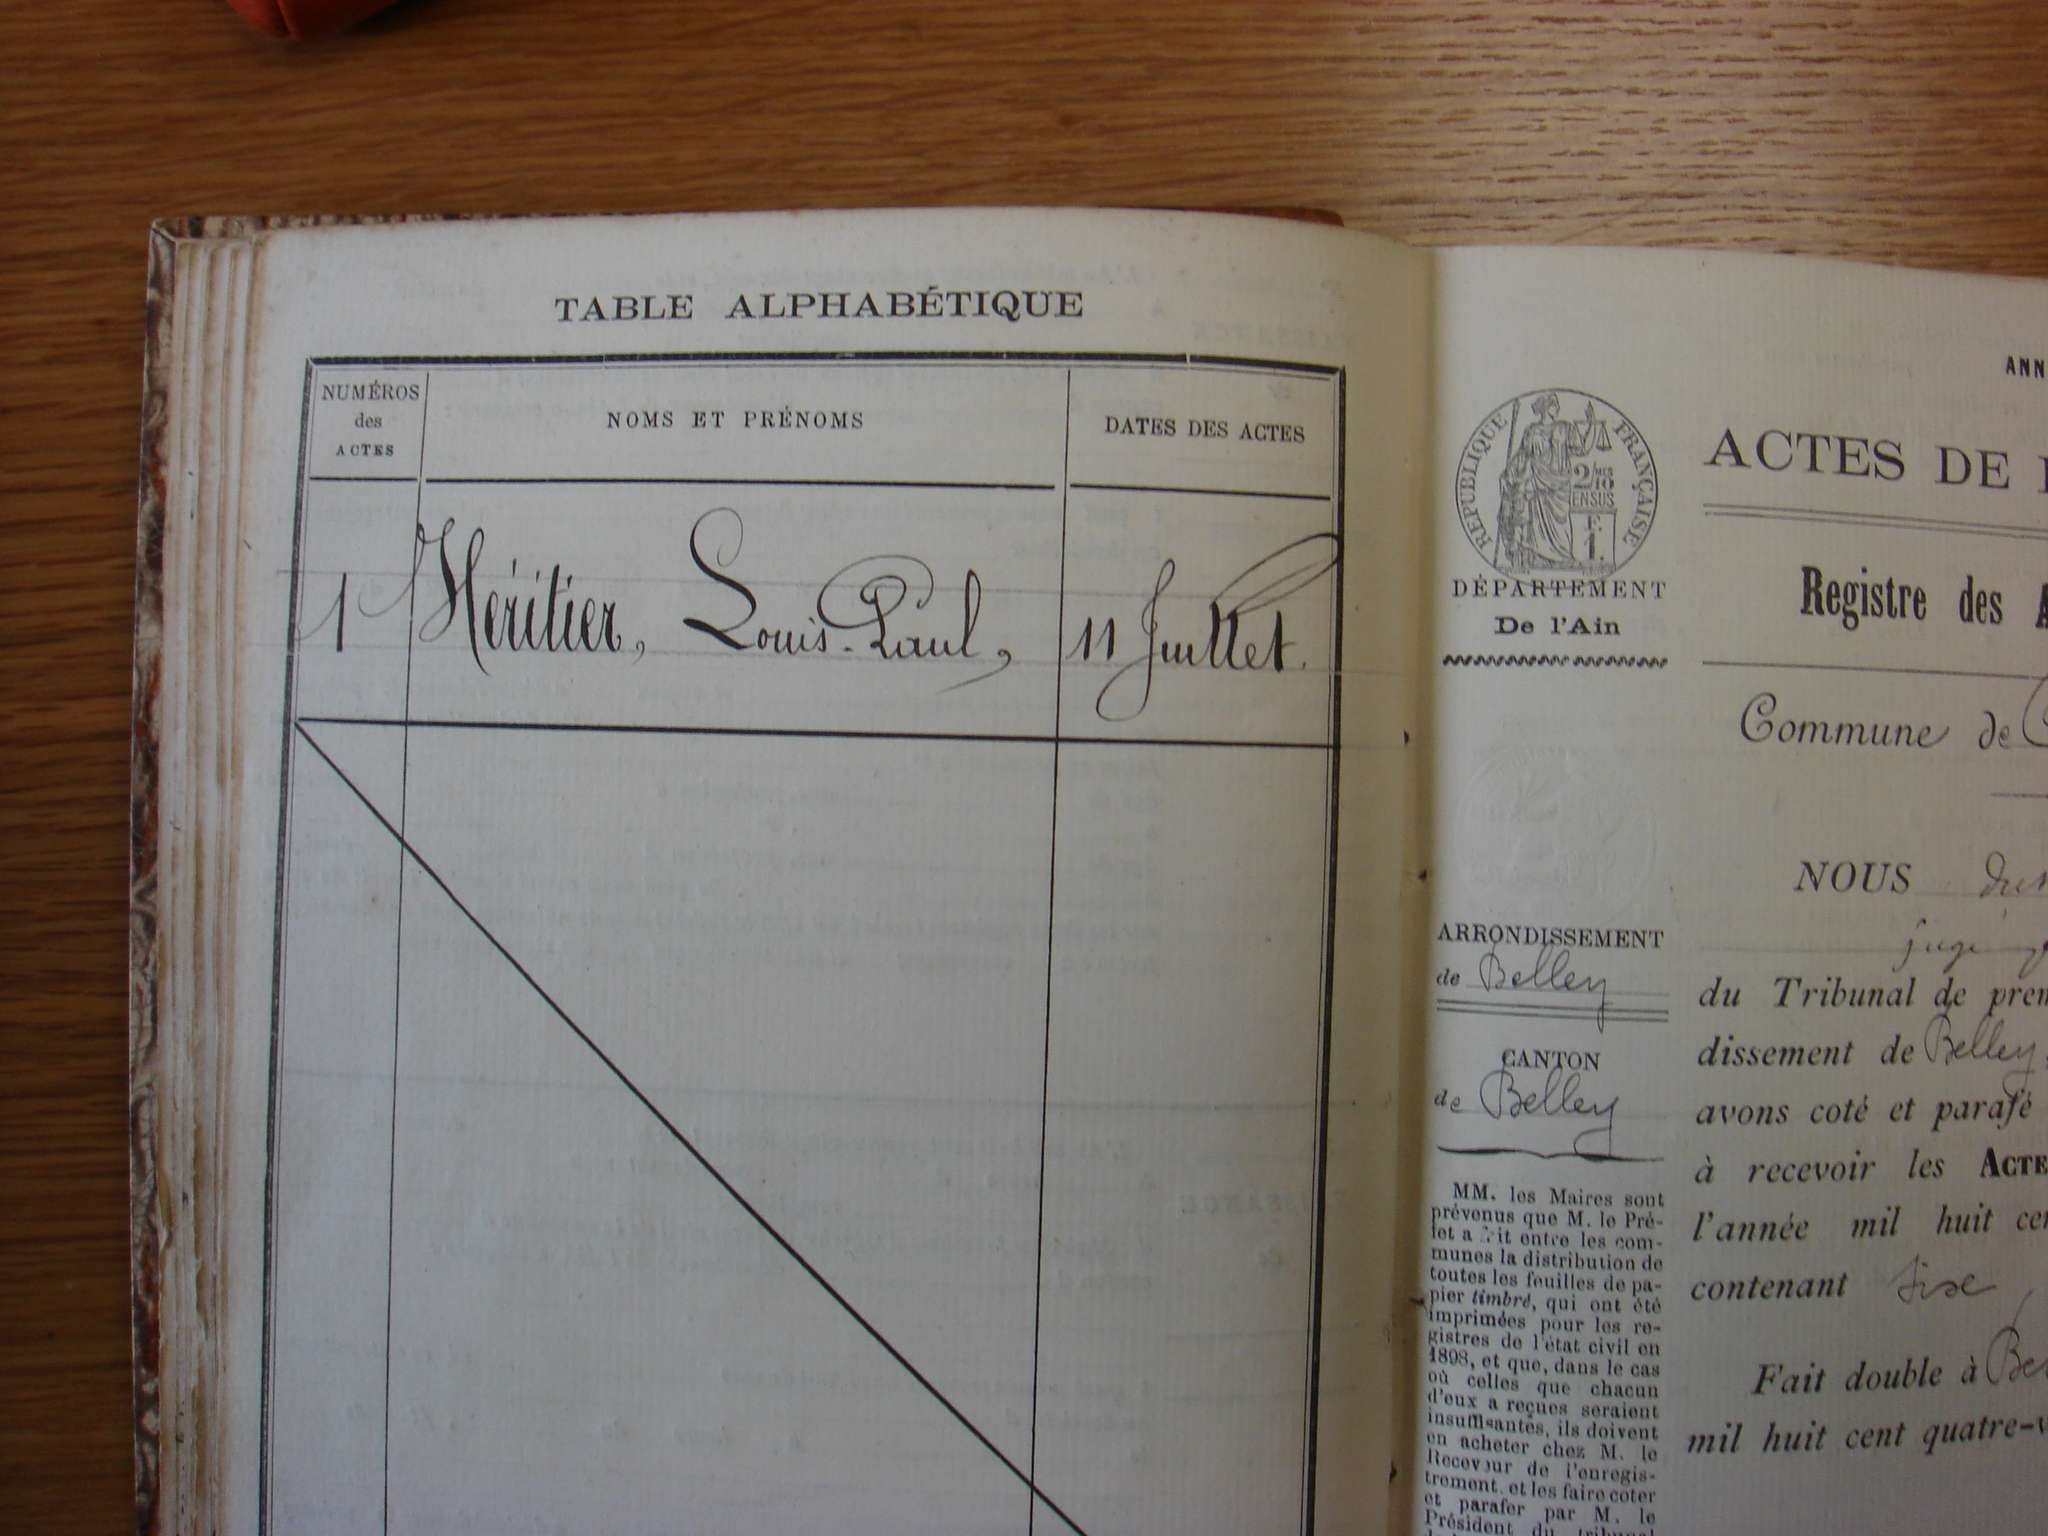 TABLE ALPHABÉTIQUE
NUMÉROS
des
ACTES
NOMS ET PRÉNOMS
DATES DES ACTES
1 Héritier, Louis-Paul, 11 Juillet.
ANN
RÉPUBLIQUE FRANÇAISE
2/10
EN SUS
F.
1.
ACTES DE
DÉPARTEMENT
De l'Ain
Registre des A
Commune de
NOUS
juge
ARRONDISSEMENT
de Belley
du Tribunal de prem
dissement de Belley,
CANTON
de Belley
avons coté et parafé
à recevoir les ACTE
l'année mil huit cen
contenant six
Fait double à Bel
mil huit cent quatre-v
MM. les Maires sont
prévenus que M. le Pré-
fet a fait entre les com-
munes la distribution de
toutes les feuilles de pa-
pier timbré, qui ont été
imprimées pour les re-
gistres de l'état civil en
1898, et que, dans le cas
où celles que chacun
d'eux a reçues seraient
insuffisantes, ils doivent
en acheter chez M. le
Receveur de l'enregis-
trement, et les faire coter
et parafer par M. le
Président du tribunal